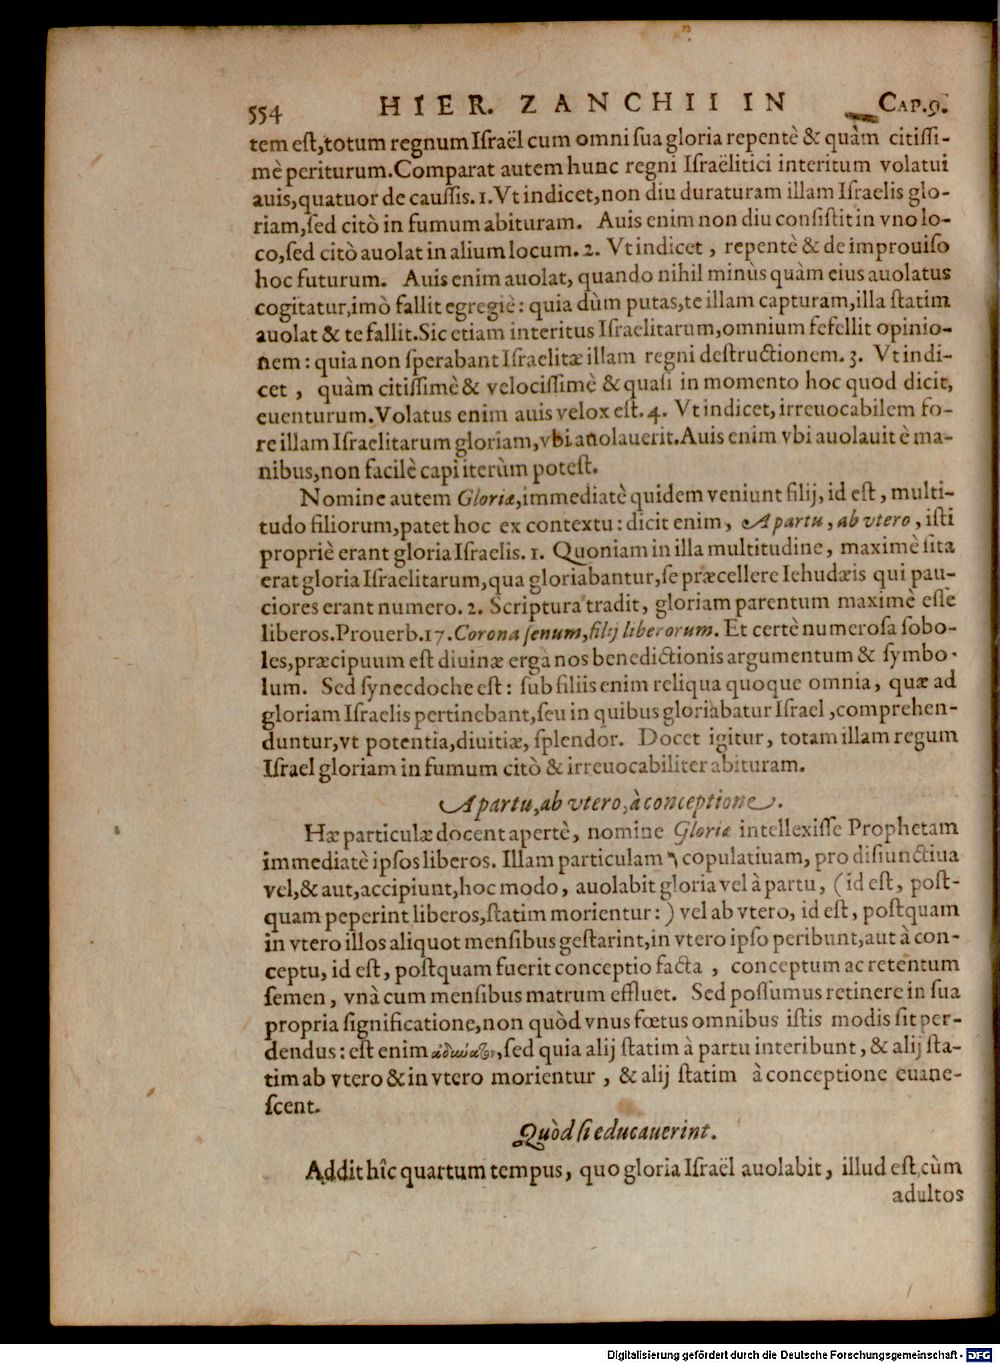 554 HIER. ZANCHII IN CAP.9.
tem eſt,totum regnum Iſraël cum omni ſua gloria repentè & quàm citiſſi-
mè periturum.Comparat autem hunc regni Iſraëlitici interitum volatui
auis,quatuor de cauſſis.1.Vt indicet,non diu duraturam illam Iſraelis glo-
riam,ſed citò in fumum abituram. Auis enim non diu conſiſtit in vno lo-
co,ſed citò auolat in alium locum.2. Vt indicet, repentè & de improuiſo
hoc futurum. Auis enim auolat, quando nihil minùs quàm eius auolatus
cogitatur,imò fallit egregiè: quia dùm putas,te illam capturam,illa ſtatim
auolat & te fallit.Sic etiam interitus Iſraelitarum,omnium fefellit opinio-
nem: quia non ſperabant Iſraelitæ illam regni deſtructionem.3. Vt indi-
cet, quàm citiſſimè & velociſſimè & quaſi in momento hoc quod dicit,
euenturum.Volatus enim auis velox eſt.4. Vt indicet, irreuocabilem fo-
re illam Iſraelitarum gloriam,vbi auolauerit.Auis enim vbi auolauit è ma-
nibus,non facilè capi iterùm poteſt.
Nomine autem Gloriæ,immediatè quidem veniunt filij, id eſt, multi-
tudo filiorum,patet hoc ex contextu: dicit enim, A partu, ab vtero, iſti
propriè erant gloria Iſraelis.1. Quoniam in illa multitudine, maximè ſita
erat gloria Iſraelitarum,qua gloriabantur,ſe præcellere Iehudæis qui pau-
ciores erant numero.2. Scriptura tradit, gloriam parentum maximè eſſe
liberos.Prouerb.17.Corona ſenum,filij liberorum. Et certè numeroſa ſobo-
les,præcipuum eſt diuinæ erga nos benedictionis argumentum & ſymbo-
lum. Sed ſynecdoche eſt: ſub filiis enim reliqua quoque omnia, quæ ad
gloriam Iſraelis pertinebant,ſeu in quibus gloriabatur Iſrael,comprehen-
duntur,vt potentia,diuitiæ, ſplendor. Docet igitur, totam illam regum
Iſrael gloriam in fumum citò & irreuocabiliter abituram.
A partu,ab vtero,à conceptione.
Hæ particulæ docent apertè, nomine Gloriæ intellexiſſe Prophetam
immediatè ipſos liberos. Illam particulam ו copulatiuam, pro diſiunctiua
vel,& aut,accipiunt,hoc modo, auolabit gloria vel à partu, (id eſt, poſt-
quam peperint liberos,ſtatim morientur:) vel ab vtero, id eſt, poſtquam
in vtero illos aliquot menſibus geſtarint,in vtero ipſo peribunt,aut à con-
ceptu, id eſt, poſtquam fuerit conceptio facta, conceptum ac retentum
ſemen, vnà cum menſibus matrum effluet. Sed poſſumus retinere in ſua
propria ſignificatione,non quòd vnus fœtus omnibus iſtis modis ſit per-
dendus: eſt enim ἀδύνατον,ſed quia alij ſtatim à partu interibunt, & alij ſta-
tim ab vtero & in vtero morientur, & alij ſtatim à conceptione euane-
ſcent.
Quòd ſi educauerint.
Addit hîc quartum tempus, quo gloria Iſraël auolabit, illud eſt,cùm
adultos
Digitalisierung gefördert durch die Deutsche Forschungsgemeinschaft - DFG